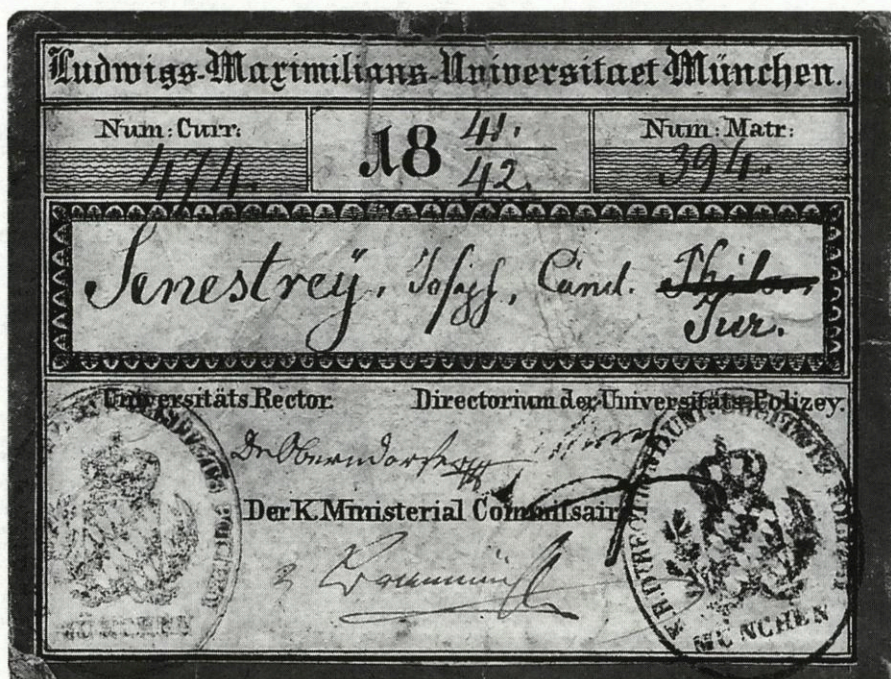 Ludwigs-Maximilians-Universitaet München.
Num: Curr: 18 41./42. Num: Matr:
474. 394.
Senestreÿ, Joseph, Cand. Philos.
Jur.
Universitäts Rector. Directorium der Universitäts-Polizey.
Dr Oberndorfer
Der K. Ministerial Commissair
MÜNCHEN
MÜNCHEN